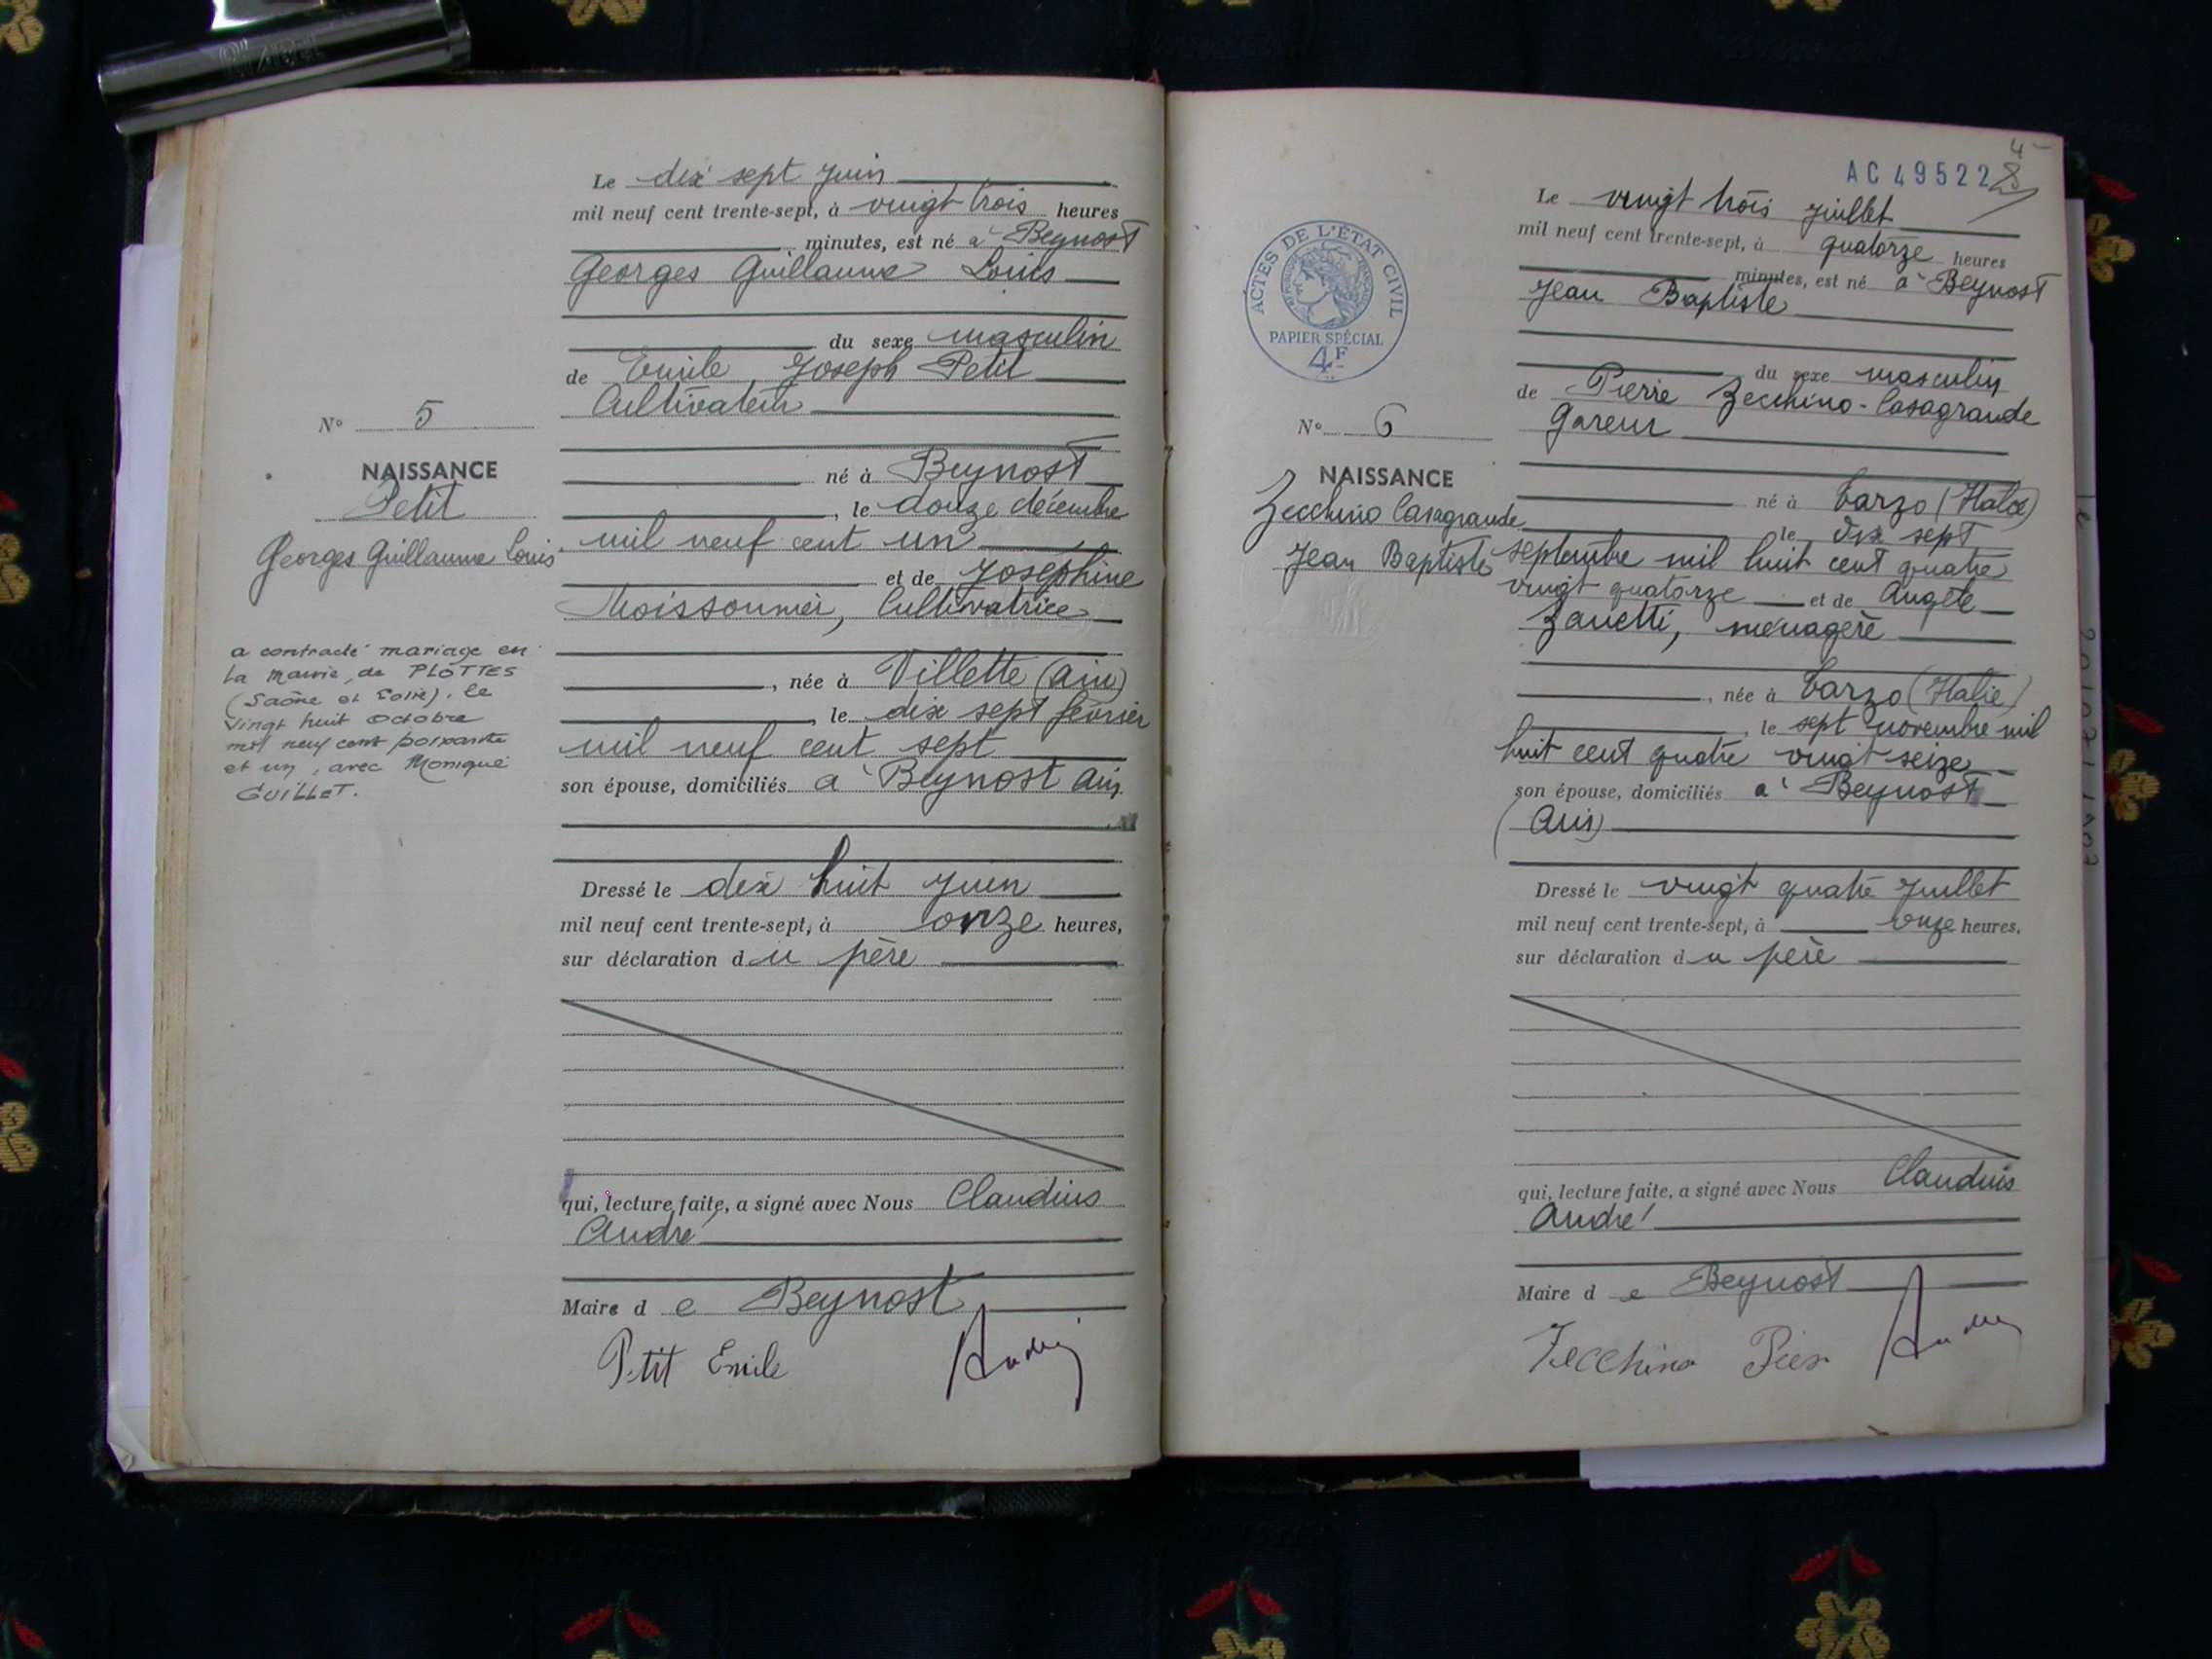 Le dix sept juin
mil neuf cent trente-sept, à vingt trois heures
minutes, est né à Beynost
Georges Guillaume Louis
du sexe masculin
de Emile Joseph Petit
Cultivateur
né à Beynost
, le douze décembre
mil neuf cent un
et de Joséphine
Moissonnier, Cultivatrice
, née à Villette (Ain)
, le dix sept février
mil neuf cent sept
son épouse, domiciliés à Beynost Ain
Dressé le dix huit juin
mil neuf cent trente-sept, à onze heures,
sur déclaration du père
qui, lecture faite, a signé avec Nous Claudius
André
Maire de Beynost
Petit Emile
N° 5
NAISSANCE
Petit
Georges Guillaume Louis
a contracté mariage en
la mairie, de PLOTTES
(Saône et Loire), le
vingt huit octobre
mil neuf cent soixante
et un, avec Monique
GUILLET.
AC 495228
4
Le vingt trois juillet
mil neuf cent trente-sept, à quatorze heures
minutes, est né à Beynost
Jean Baptiste
du sexe masculin
de Pierre Zecchino-Casagrande
Gareur
né à Tarzo (Italie)
le dix sept
septembre mil huit cent quatre
vingt quatorze et de Angèle
Zanetti, ménagère
, née à Tarzo (Italie)
, le sept novembre mil
huit cent quatre vingt seize
son épouse, domiciliés à Beynost
(Ain)
Dressé le vingt quatre juillet
mil neuf cent trente-sept, à onze heures,
sur déclaration du père
qui, lecture faite, a signé avec Nous Claudius
André
Maire de Beynost
Zecchino Pier
ACTES DE L'ÉTAT CIVIL
PAPIER SPÉCIAL
4F
N° 6
NAISSANCE
Zecchino Casagrande
Jean Baptiste